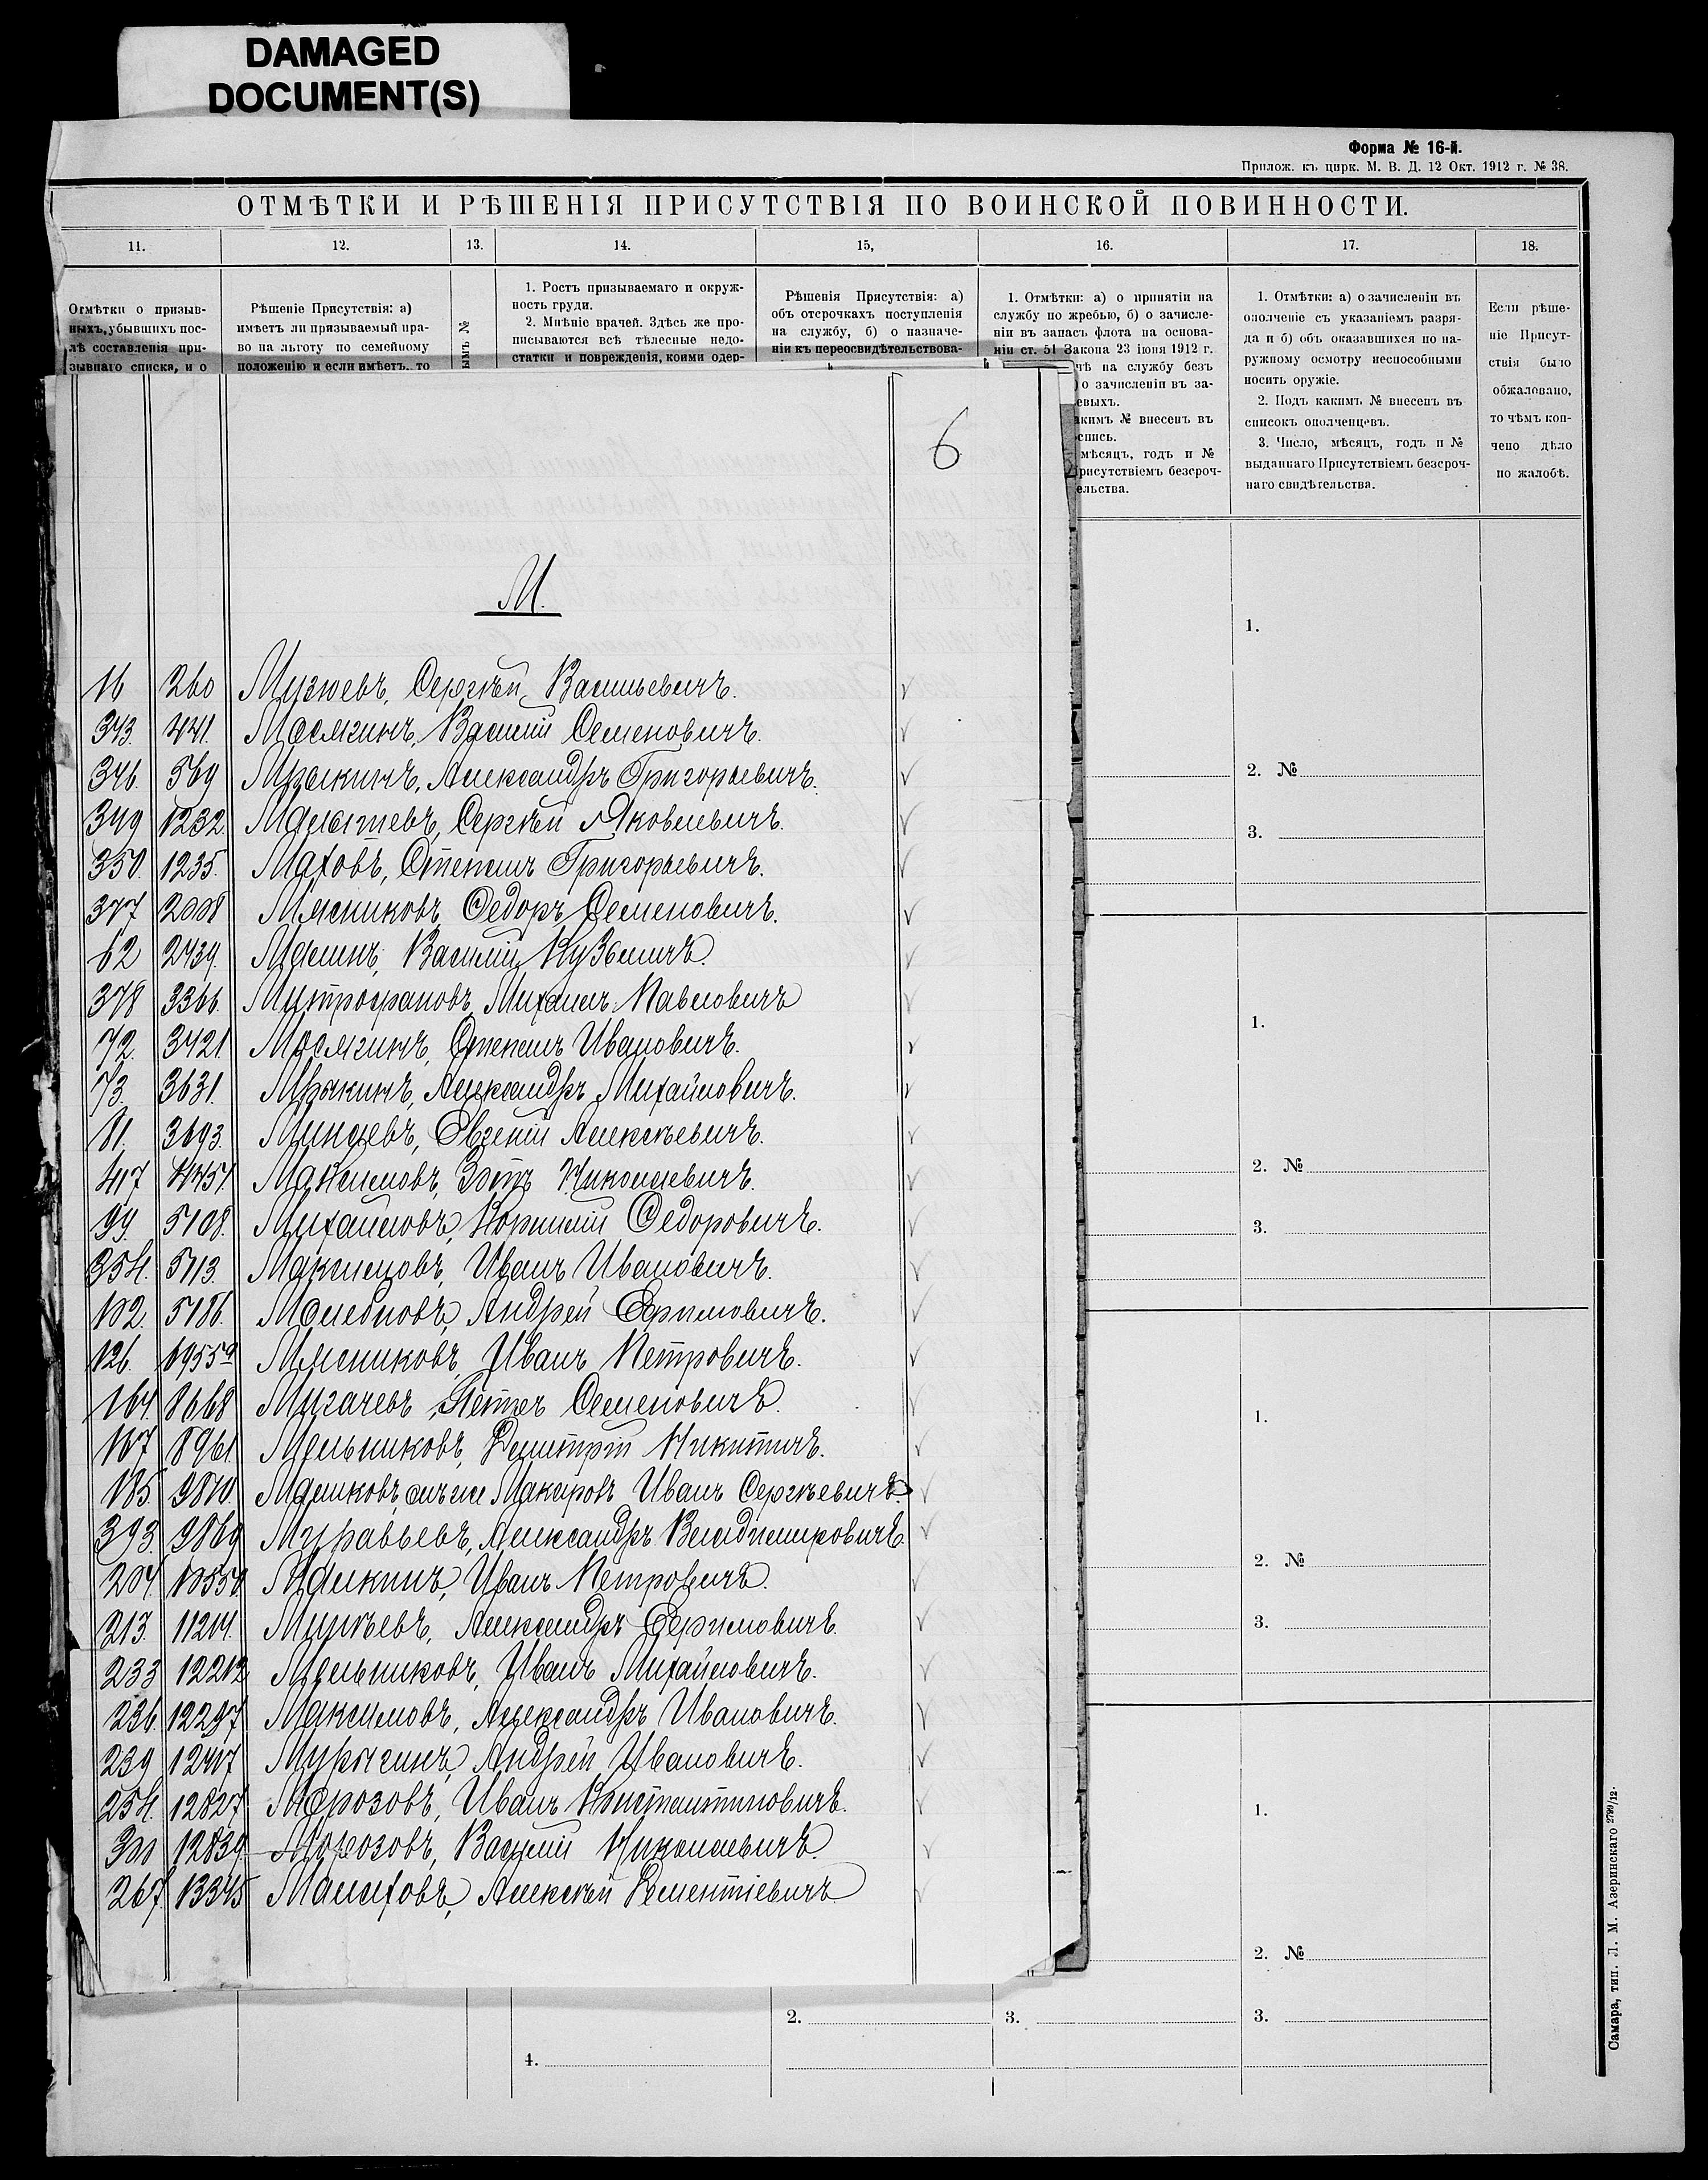 DAMAGED
DOCUMENT(S)
Форма № 16-й.
Прилож. къ цирк. М. В. Д. 12 Окт. 1912 г. № 38.
ОТМѢТКИ И РѢШЕНІЯ ПРИСУТСТВІЯ ПО ВОИНСКОЙ ПОВИННОСТИ.
11. 12. 13. 14. 15, 16. 17. 18.
Отмѣтки о призыв-
ныхъ, убывшихъ пос-
лѣ составленія при-
зывнаго списка, и о
Рѣшеніе Присутствія: а)
имѣетъ ли призываемый пра-
во на льготу по семейному
положенію и если имѣетъ, то
ымъ №
1. Ростъ призываемаго и окруж-
ность груди.
2. Мнѣніе врачей. Здѣсь же про-
писываются всѣ тѣлесные недо-
статки и поврежденія, коими одер-
Рѣшенія Присутствія: а)
объ отсрочкахъ поступленія
на службу, б) о назначе-
ніи къ переосвидѣтельствова-
1. Отмѣтки: а) о принятіи на
службу по жребью, б) о зачисле-
ніи въ запасъ флота на основа-
ніи ст. 51 Закона 23 іюня 1912 г.
чѣ на службу безъ
) о зачисленіи въ за-
евыхъ.
акимъ № внесенъ въ
спись.
мѣсяцъ, годъ и №
рисутствіемъ безсроч-
ельства.
1. Отмѣтки: а) о зачисленіи въ
ополченіе съ указаніемъ разря-
да и б) объ оказавшихся по на-
ружному осмотру неспособными
носить оружіе.
2. Подъ какимъ № внесенъ въ
списокъ ополченцевъ.
3. Число, мѣсяцъ, годъ и №
выданнаго Присутствіемъ безсроч-
наго свидѣтельства.
Если рѣше-
ніе Присут-
ствія было
обжаловано,
то чѣмъ кон-
чено дѣло
по жалобѣ.
6
М.
16 260 Музюевъ, Сергѣй Васильевичъ.
343. 441. Мосягинъ, Василій Семеновичъ.
346. 569 Мрыкинъ, Александръ Григорьевичъ.
349 1232. Малышевъ, Сергѣй Яковлевичъ.
350. 1235. Маховъ, Степанъ Григорьевичъ.
377 2008 Мясниковъ, Федоръ Семеновичъ.
62 2439. Масинъ, Василій Кузьмичъ.
378 3366. Митрофановъ, Михаилъ Павловичъ
72. 3421. Мосягинъ, Степанъ Ивановичъ.
73. 3631. Мрыкинъ, Александръ Михайловичъ.
81. 3693. Минаевъ, Евгеній Алексѣевичъ.
417 4457. Максимовъ, Зотъ Николаевичъ.
99. 5108. Михайловъ, Корнилій Федоровичъ.
354. 5113. Максимовъ, Иванъ Ивановичъ.
102. 5186. Андрей Ефимовичъ.
126. 6955а Мясниковъ, Иванъ Петровичъ.
164. 8668 Мигачевъ, Петръ Семеновичъ.
167 8961. Мельниковъ, Димитрій Никитичъ.
185. 9810. Машковъ, онъ же Макаровъ Иванъ Сергѣевичъ.
393. 9869 Муравьевъ, Александръ Владиміровичъ.
204. 10550. Иванъ Петровичъ.
213. 11214. Александръ Ефимовичъ.
233 12212 Мельниковъ, Иванъ Михайловичъ.
236. 12297 Максимовъ, Александръ Ивановичъ.
239 12417 Мурыгинъ, Андрей Ивановичъ.
254. 12827 Морозовъ, Иванъ Константиновичъ.
300 12839. Морозовъ, Василій Николаевичъ.
267. 13345 Малаховъ, Алексѣй Дементіевичъ
1.
2. №
3.
1.
2. №
3.
1.
2. №
3.
1.
2. №
4.
2.
3.
3.
Самара, тип. Л. М. Азеринскаго 2790/12.